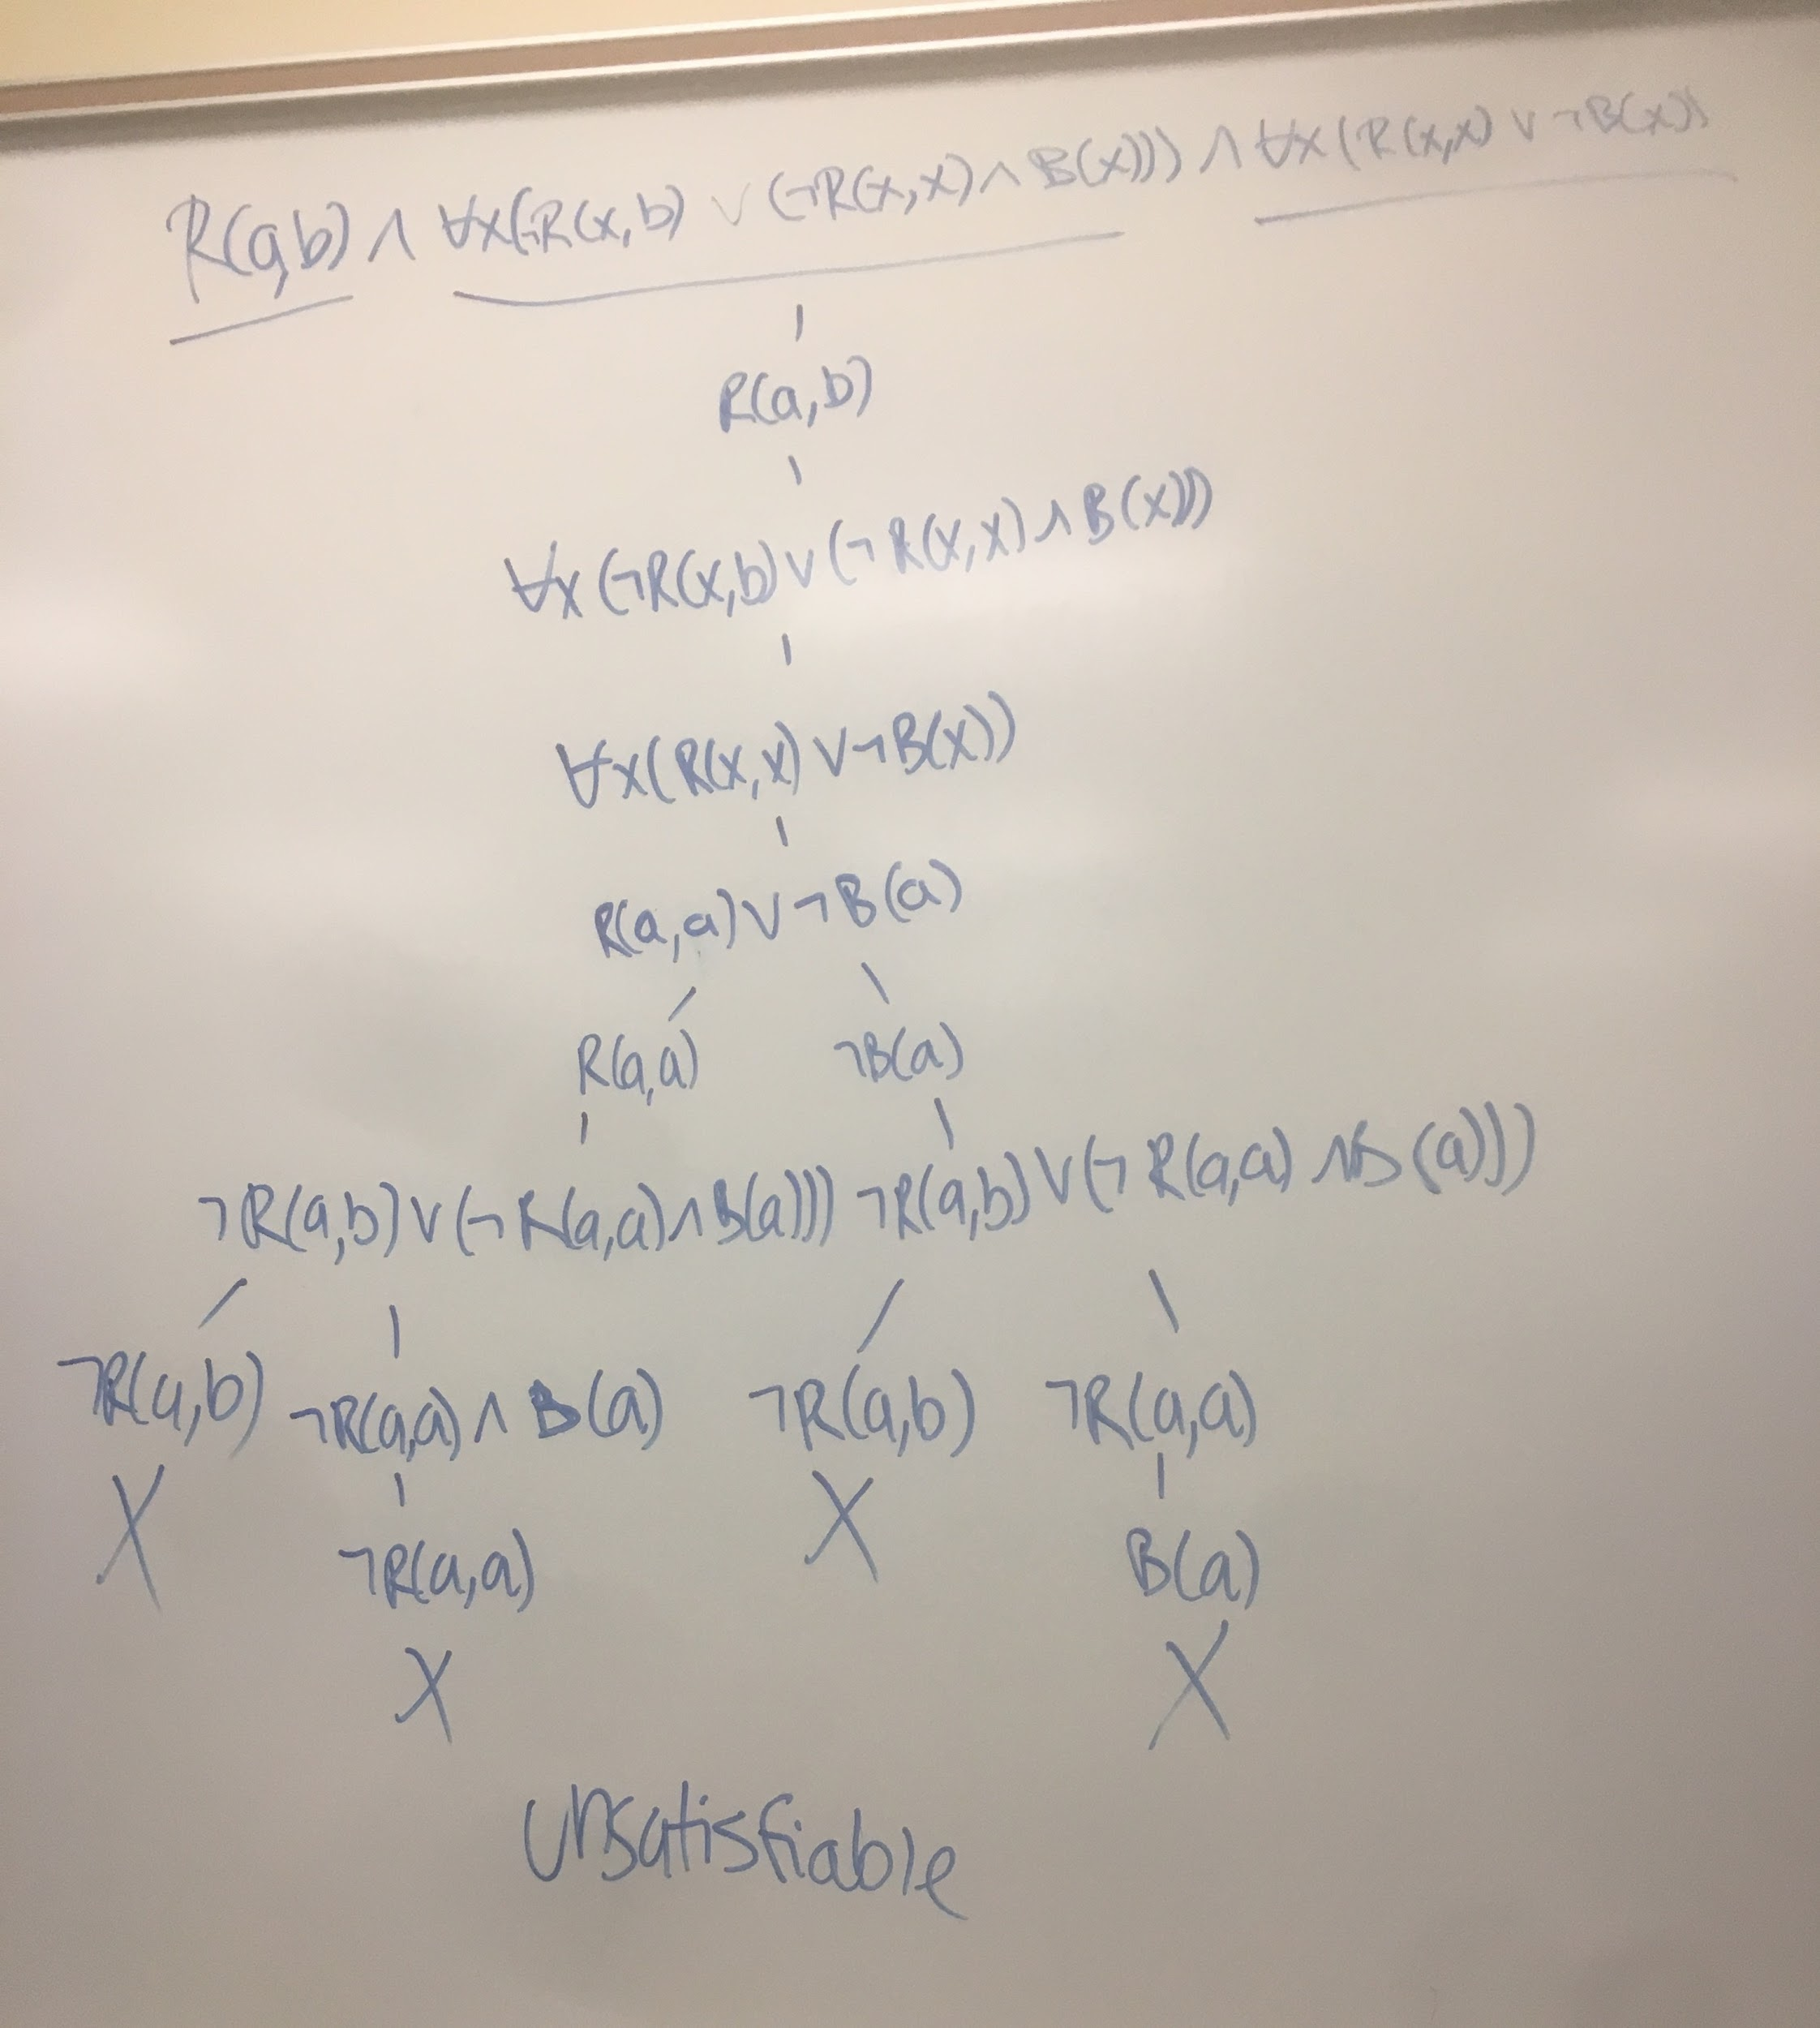 R(a,b) ∧ ∀x(¬R(x,b) ∨ (¬R(x,x) ∧ B(x))) ∧ ∀x(R(x,x) ∨ ¬B(x))
R(a,b)
∀x(¬R(x,b) ∨ (¬R(x,x) ∧ B(x)))
∀x(R(x,x) ∨ ¬B(x))
R(a,a) ∨ ¬B(a)
R(a,a) ¬B(a)
¬R(a,b) ∨ (¬R(a,a) ∧ B(a))) ¬R(a,b) ∨ (¬R(a,a) ∧ B(a)))
¬R(a,b) ¬R(a,a) ∧ B(a) ¬R(a,b) ¬R(a,a)
X ¬R(a,a) X B(a)
X X
Unsatisfiable